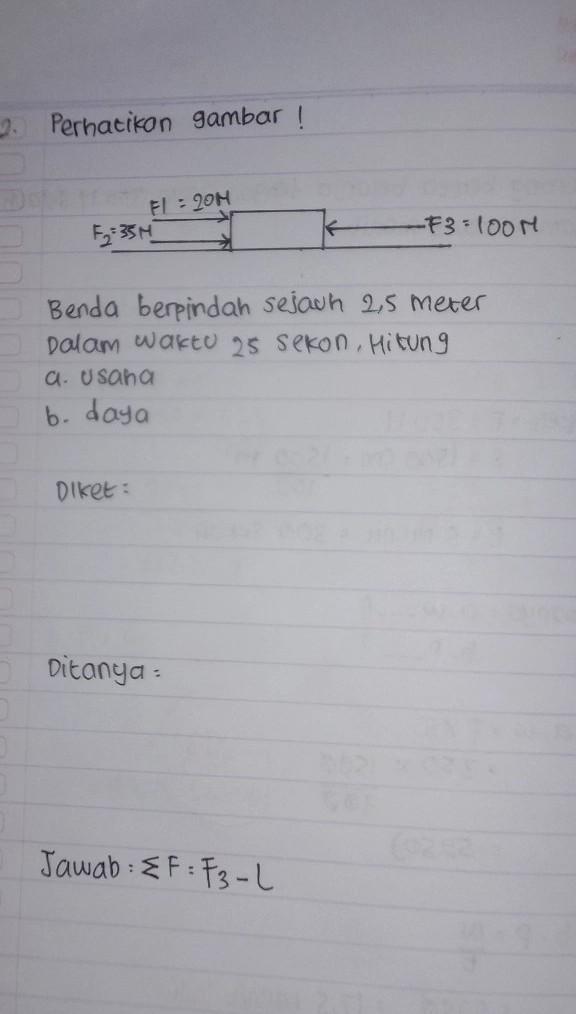 2. Perhatikan gambar !
F1 = 20N
F2=35N
F3=100N
Benda berpindah sejauh 2,5 meter
Dalam waktu 25 sekon, Hitung
a. usaha
b. daya
Diket :
Ditanya :
Jawab : ΣF = F3 - (